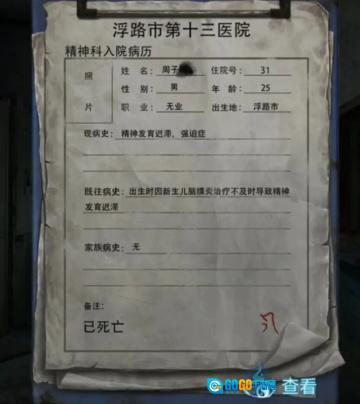 浮路市第十三医院
精神科入院病历
照片
姓名：周子 住院号：31
性别：男 年龄：25
职业：无业 出生地：浮路市
现病史：精神发育迟滞，强迫症
既往病史：出生时因新生儿脑膜炎治疗不及时导致精神
发育迟滞
家族病史：无
备注：
已死亡
查看